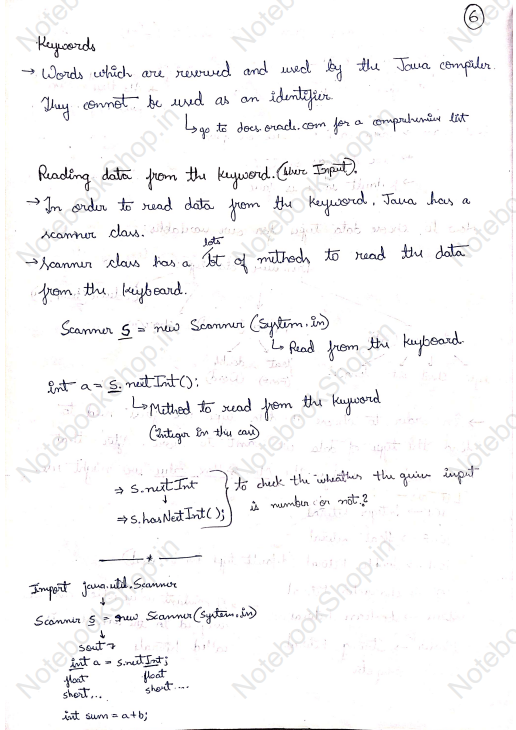 6
Keywords
→ Words which are reserved and used by the Java compiler.
They connot be used as an identifier.
↳ go to docs.oracle.com for a comprehensive list
Reading data from the keyword. (User Input).
→ In order to read data from the keyword, Java has a
scanner class.
lots
→ Scanner class has a lot of methods to read the data
from the keyboard.
Scanner S = new Scanner (System.in)
↳ Read from the keyboard
int a = S.nextInt();
↳ Method to read from the keyword
(Integer in this case)
⇒ S.nextInt
to check the wheather the given input
↓
is number or not?
⇒ S.hasNextInt();
Import java.util.Scanner
↓
Scanner S = new Scanner(System.in)
↓
sout →
int a = s.nextInt;
float float
short... short...
int sum = a+b;
NotebookShop.in